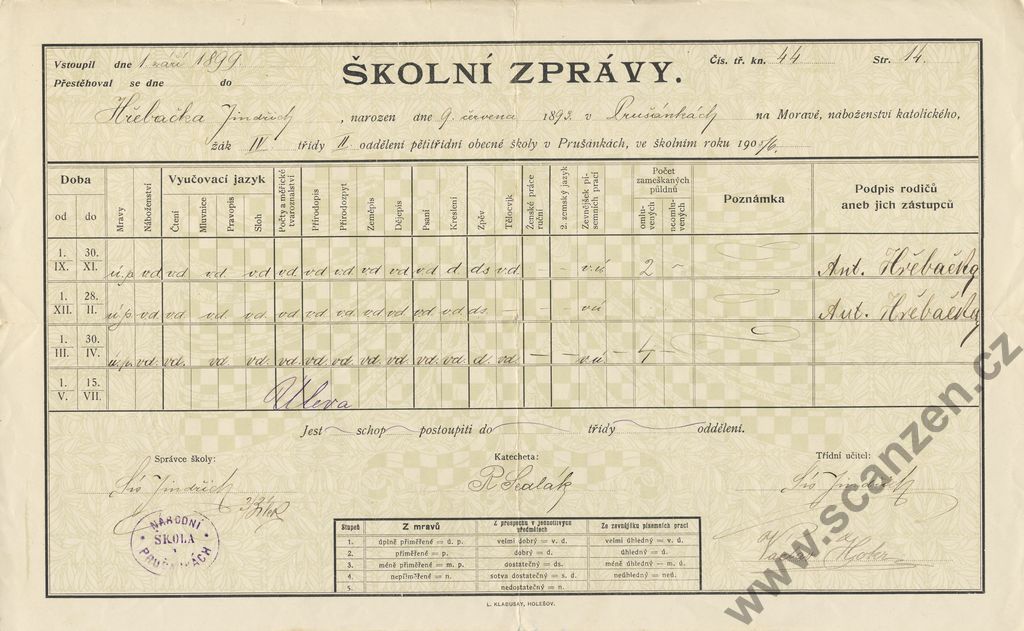 Vstoupil dne 1. září 1899.
Přestěhoval se dne do
ŠKOLNÍ ZPRÁVY.
Čís. tř. kn. 44 Str. 14.
Hřebačka Jindřich, narozen dne 9. června 1893 v Prušánkách na Moravě, náboženství katolického,
žák IV třídy II oddělení pětitřídní obecné školy v Prušánkách, ve školním roku 1905/6.
Doba
od do
Mravy
Náboženství
Vyučovací jazyk
Čtení
Mluvnice
Pravopis
Sloh
Počty a měřické tvaroznalství
Přírodopis
Přírodozpyt
Zeměpis
Dějepis
Psaní
Kreslení
Zpěv
Tělocvik
Ženské práce ruční
2. zemský jazyk
Zevnějšek písemních prací
Počet zameškaných půldnů
omluvených
neomluvených
Poznámka
Podpis rodičů
aneb jich zástupců
1. IX. 30. XI. ú.p. vd vd vd vd vd vd vd vd vd vd d ds vd – – v.ú 2 – Ant. Hřebačka
1. XII. 28. II. ú.p. vd. vd vd vd vd vd vd vd vd vd vd ds. – – – vú Ant. Hřebačka
1. III. 30. IV. ú.p. vd. vd. vd. vd. vd. vd. vd. vd. vd. vd. vd. d. vd. – – v.ú. – 4 –
1. V. 15. VII. Úleva
Jest schop postoupiti do třídy oddělení.
Správce školy:
Katecheta:
Třídní učitel:
Sís Jindřich
Sís Jindřich
NÁRODNÍ
ŠKOLA
v
PRUŠÁNKÁCH
Stupeň Z mravů Z prospěchu v jednotlivých předmětech Ze zevnějšku písemních prací
1. úplně přiměřené = ú. p. velmi dobrý = v. d. velmi úhledný = v. ú.
2. přiměřené = p. dobrý = d. úhledný = ú.
3. méně přiměřené = m. p. dostatečný = ds. méně úhledný = m. ú.
4. nepřiměřené = n. sotva dostatečný = s. d. neúhledný = neú.
5. nedostatečný = n.
L. KLABUSAY, HOLEŠOV.
www.scanzen.cz